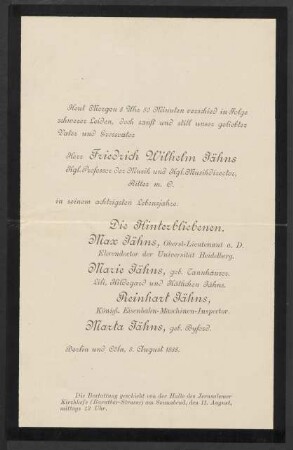 Heut Morgen 6 Uhr 50 Minuten verschied in Folge
schwerer Leiden, doch sanft und still unser geliebter
Vater und Grossvater
Herr Friedrich Wilhelm Jähns
Kgl. Professor der Musik und Kgl. Musikdirector,
Ritter m. O.
in seinem achtzigsten Lebensjahre.
Die Hinterbliebenen.
Max Jähns, Oberst-Lieutenant a. D.
Ehrendoctor der Universität Heidelberg.
Marie Jähns, geb. Tannhauser.
Lili, Hildegard und Käthchen Jähns.
Reinhart Jähns,
Königl. Eisenbahn-Maschinen-Inspector.
Marta Jähns, geb.
Berlin und Cöln, 8. August 1888.
Die Bestattung geschieht von der Halle des Jerusalemer
Kirchhofs (Baruther-Strasse) am Sonnabend, den 11. August,
mittags 12 Uhr.